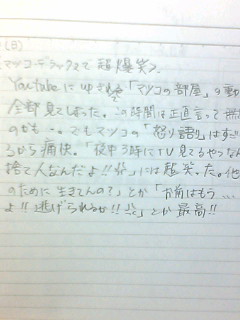 (日)
マツコ・デラックスで超爆笑♪
YouTubeにupされてる「マツコの部屋」の動
全部見てしまった。この時間は正直言って無
のかも…。でもマツコの「怒り語り」はすご
るから痛快。「夜中3時にTV見てるやつなん
捨て人なんだよ!!」には超笑った。他
のために生きてんの?」とか「お前はもう…
よ!!逃げられるか!!」とか最高!!